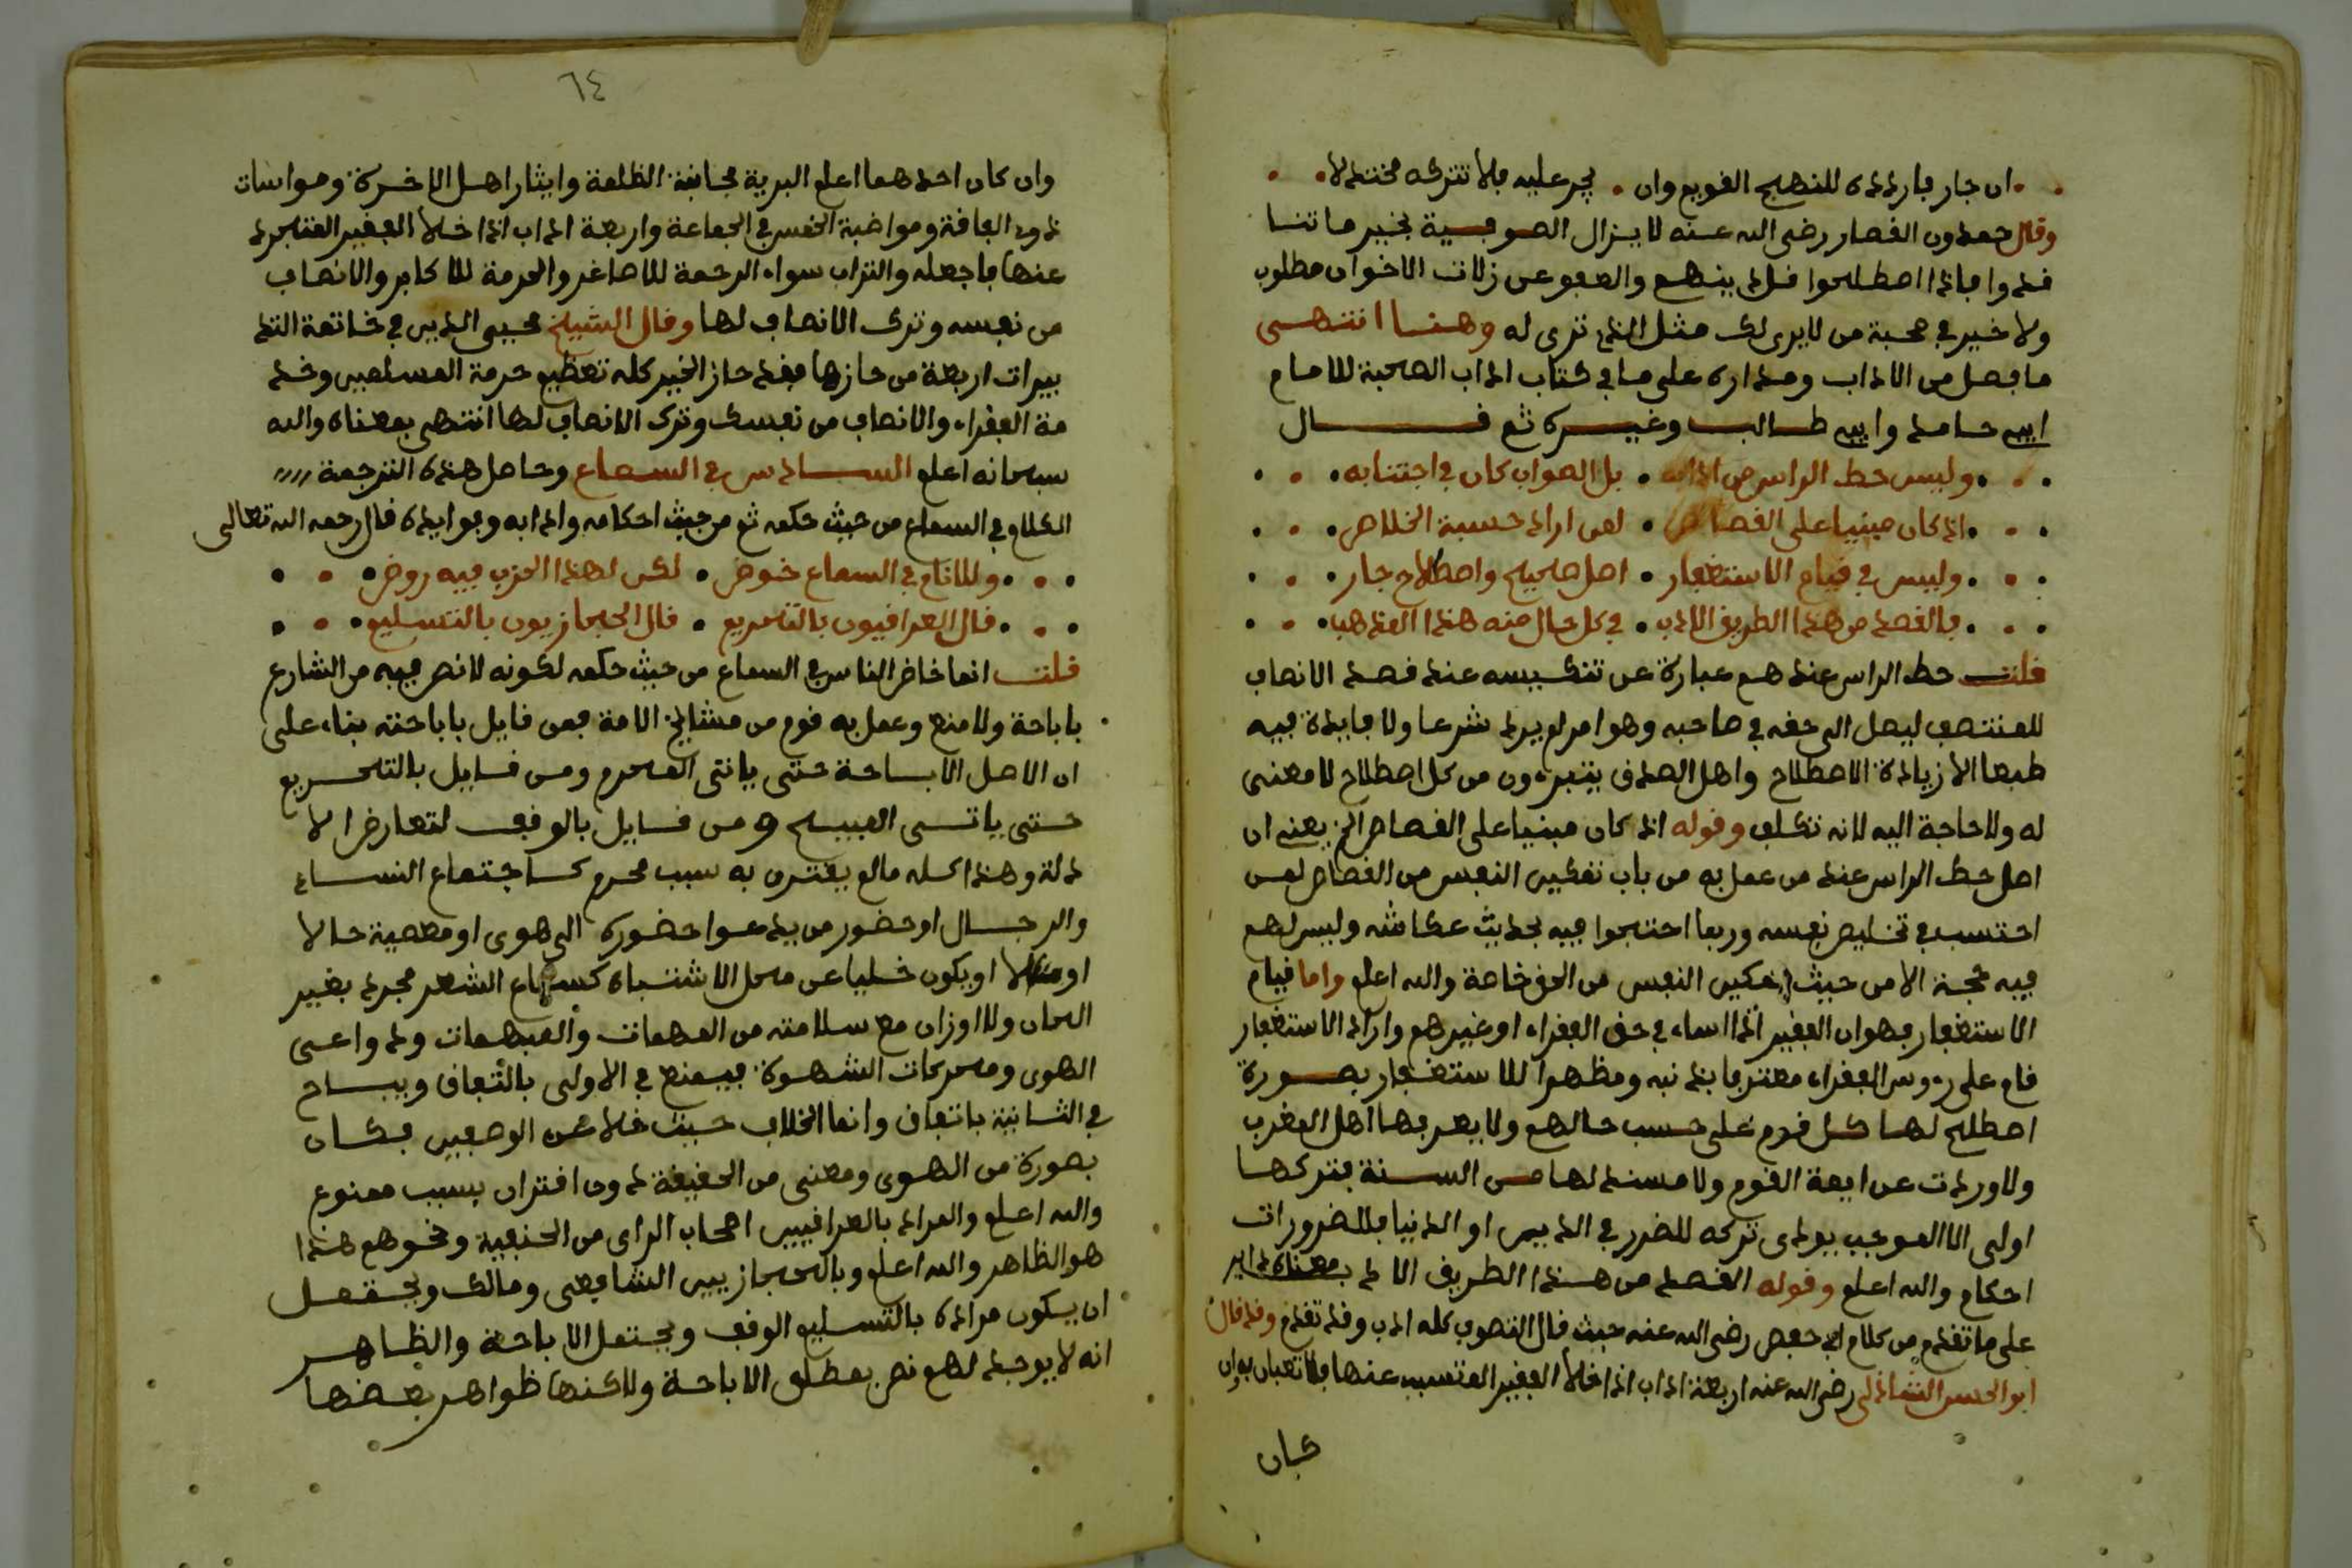 ان جار فاردده للنهج القويم وان يجر عليه فلا تتركه مختذلا
وقال حمدون القصار رضي الله عنه لا يزال الصوفية بخير ما تنا
قدوا فاذا اصطلحوا قل دينهم والعفو عن زلات الاخوان مطلوب
ولا خير في صحبة من لا يرى لك مثل الذي ترى له وهنا انتهى
ما فصل من الاداب ومداره على ما في كتاب اداب الصحبة للامام
ابي حامد وابي طالب وغيره ثم قال
وليس حط الراس من ادابه بل الصواب كان في اجتنابه
اذ كان مبنيا على القصاص لمن اراد حسبة الخلاص
وليس في قيام الاستغفار اصل صحيح واصطلاح جار
فالقصد من هذا الطريق الادب في كل حال منه هذا المذهب
قلت حط الراس عندهم عبارة عن تنكيسه عند قصد الانصاف
للمنتصف ليصل الى حقه في صاحبه وهو امر لم يرد شرعا ولا فايدة فيه
طبعا الا زيادة الاصطلاح واهل الصدق يتبرءون من كل اصطلاح لا معنى
له ولا حاجة اليه لانه تكلف وقوله اذ كان مبنيا على القصاص الخ يعني ان
اصل حط الراس عند من عمل به من باب تمكين النفس من القصاص لمن
احتسب في تخليص نفسه وربما احتجوا فيه بحديث عكاشه وليس لهم
فيه حجة الا من حيث تمكين النفس من الحق خاصة والله اعلم واما قيام
الاستغفار فهو ان الفقير اذا اساء في حق الفقراء او غيرهم واراد الاستغفار
قام على رءوس الفقراء معترفا بذنبه ومظهرا للاستغفار بصورة
اصطلح لها كل قوم على حسب حالهم ولا يعرفها اهل المغرب
ولا وردت عن ايمة القوم ولا مستند لها من السنة فتركها
اولى الا لموجب يودي تركه للضرر في الدين او الدنيا فللضرورات
احكام والله اعلم وقوله القصد من هذا الطريق الادب معناه داير
على ما تقدم من كلام ابي حفص رضي الله عنه حيث قال التصوف كله ادب وقد تقدم وقد قال
ابو الحسن الشاذلي رضي الله عنه اربعة اداب اذا خلا الفقير المتسبب عنها فلا تعبان به وان
كان
٦٤
وان كان احدهما اعلم البرية مجانبة الظلمة وايثار اهل الاخرة ومواسات
ذوي الفاقة ومواضبة الخمس في الجماعة واربعة اداب اذا خلا الفقير المتجرد
عنها فاجعله والتراب سواء الرحمة للاصاغر والحرمة للاكابر والانصاف
من نفسه وترك الانصاف لها وقال الشيخ محيي الدين في خاتمة التد
بيرات اربعة من حازها فقد حاز الخير كله تعظيم حرمة المسلمين وخد
مة الفقراء والانصاف من نفسك وترك الانصاف لها انتهى بمعناه والله
سبحانه اعلم السادس في السماع وحاصل هذه الترجمة
الكلام في السماع من حيث حكمه ثم من حيث احكامه وادابه وفوايده قال رحمه الله تعالى
وللانام في السماع خوض لكن لهذا الحزب فيه روض
قال العراقيون بالتحريم قال الحجازيون بالتسليم
قلت انما خاض الناس في السماع من حيث حكمه لكونه لا نص فيه من الشارع
باباحة ولا منع وعمل به قوم من مشايخ الامة فمن قايل باباحته بناء على
ان الاصل الاباحة حتى ياتي المحرم ومن قايل بالتحريم
حتى ياتي المبيح ومن قايل بالوقف لتعارض الا
دلة وهذا كله مالم يقترن به سبب محرم كاجتماع النساء
والرجال او حضور من يدعوا حضوره الى هوى او معصية حالا
او مئالا او يكون خليا عن محل الاشتباه كسماع الشعر مجرد بغير
الحان ولا اوزان مع سلامته من المهمات والمبهمات ودواعي
الهوى ومحركات الشهوة فيمنع في الاولى باتفاق ويباح
في الثانية باتفاق وانما الخلاف حيث خلا عن الوصفين فكان
بصورة من الهوى ومعنى من الحقيقة دون اقتران بسبب ممنوع
والله اعلم والمراد بالعراقيين اصحاب الراي من الحنفية ونحوهم هذا
هو الظاهر والله اعلم وبالحجازيين الشافعي ومالك ويحتمل
ان يكون مراده بالتسليم الوقف ويحتمل الاباحة والظاهر
انه لا يوجد لهم نص بمطلق الاباحة ولاكنها ظواهر بعضها